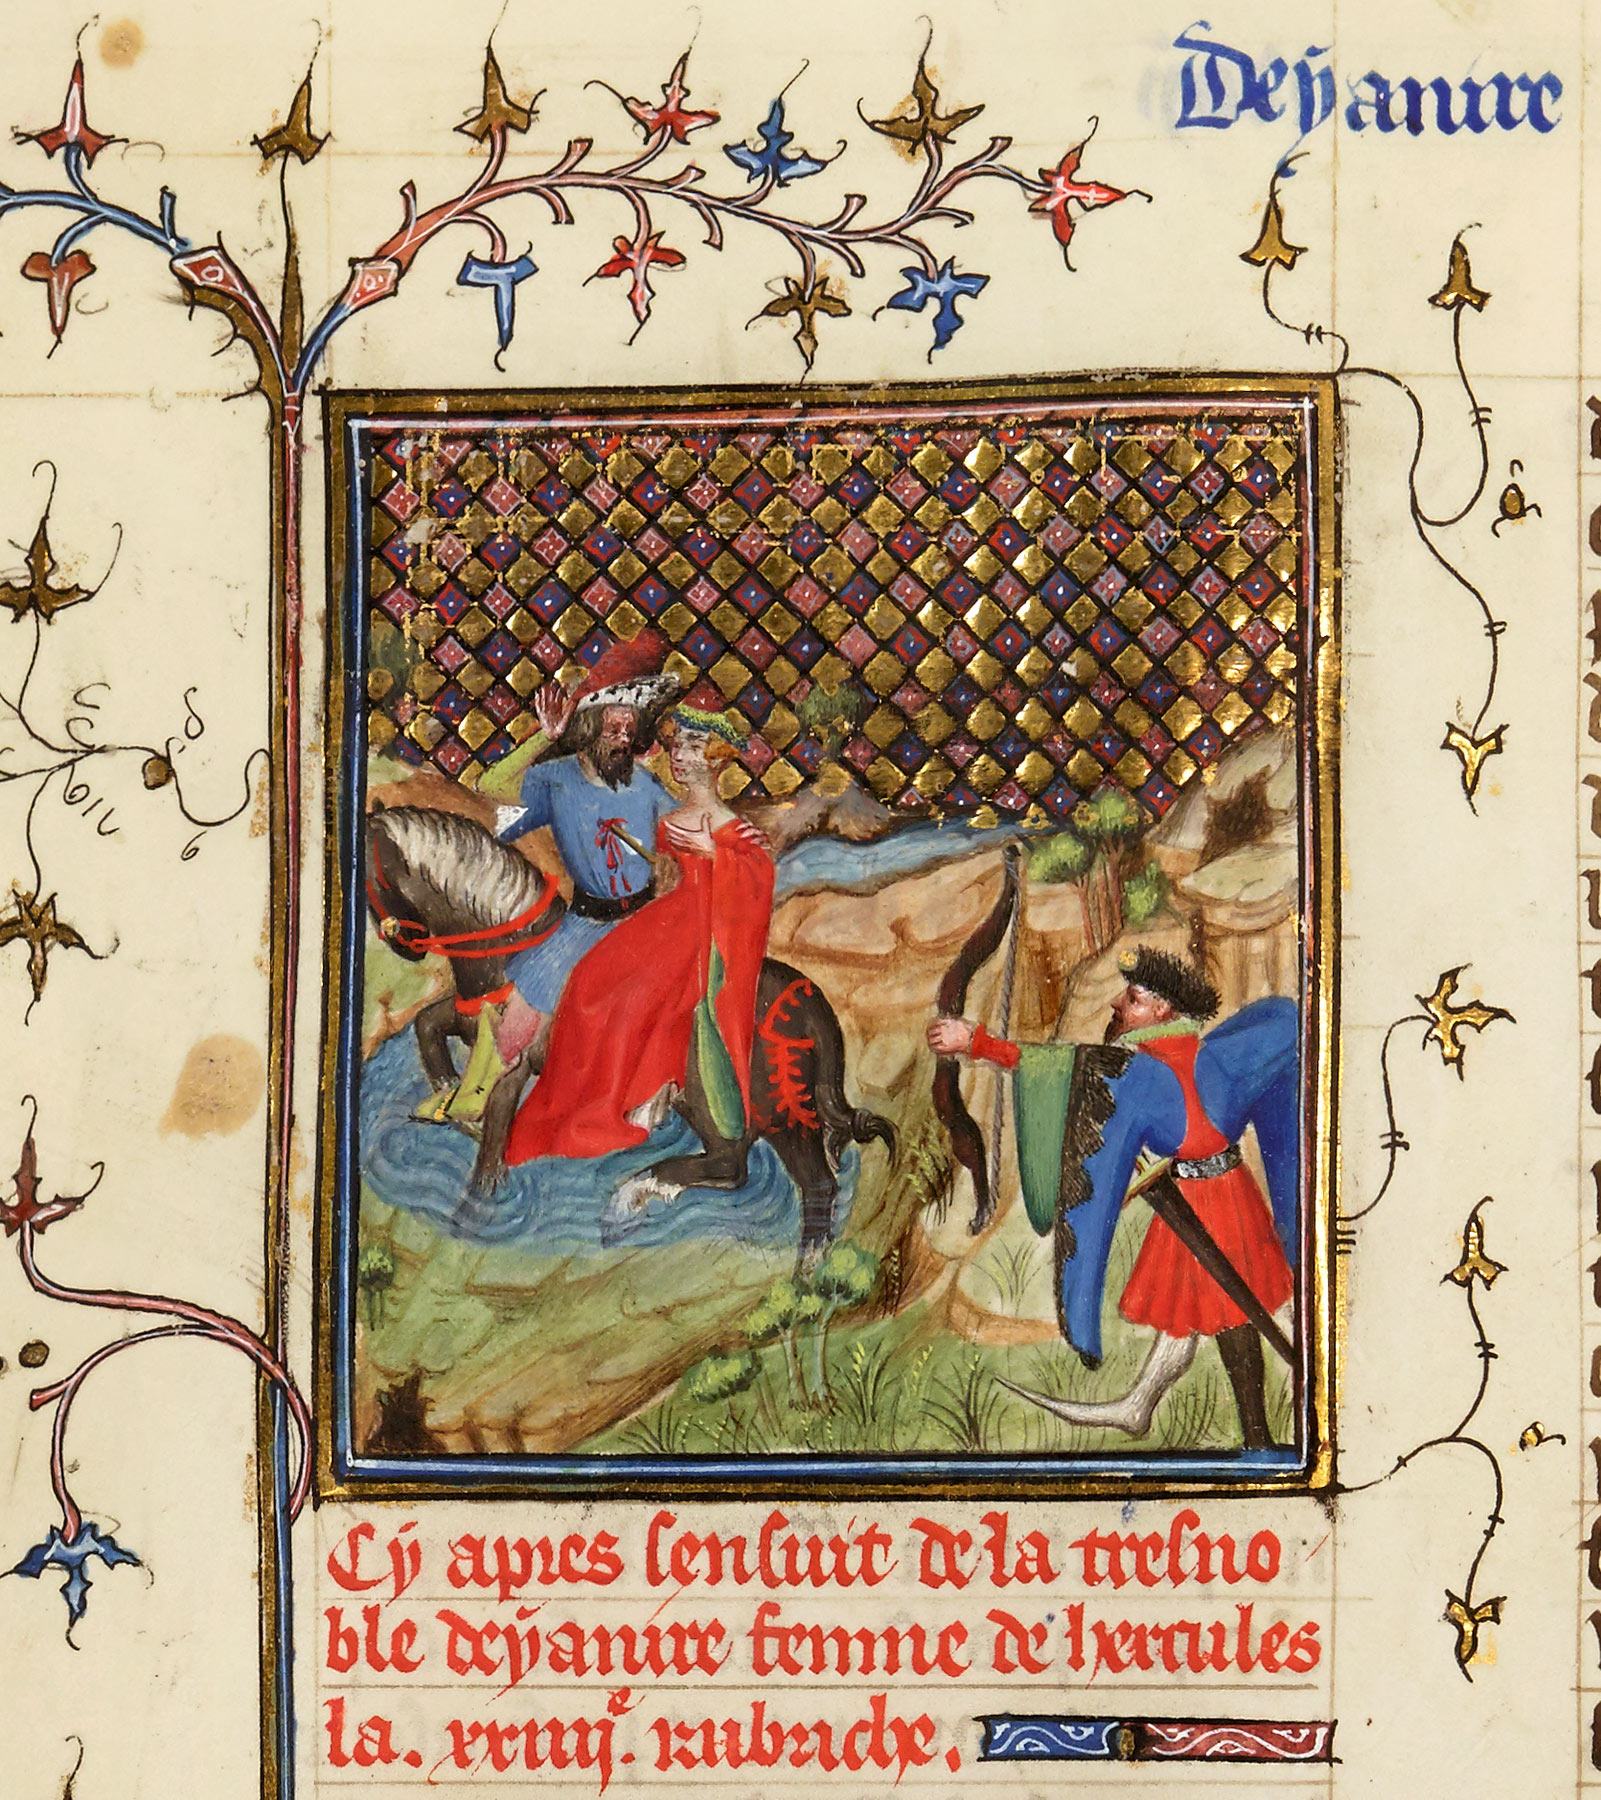 Deyanire
Cy apres sensuit de la tresno
ble deyanire femme de hercules
la. xxiiij.e rubriche.